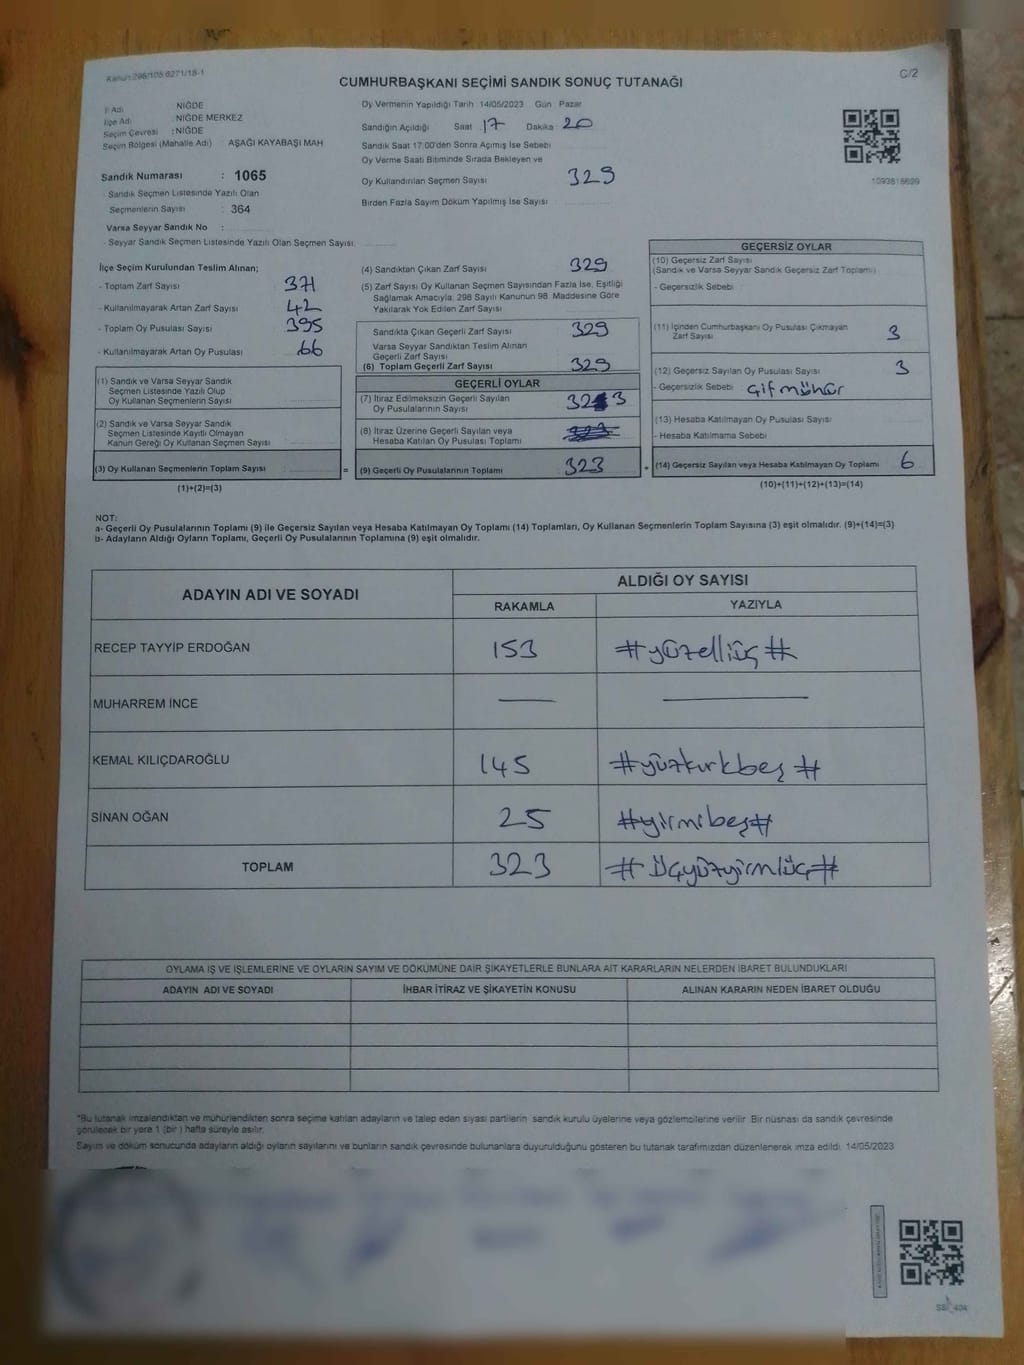 Kanun:298/105,6271/18-1
C/2
CUMHURBAŞKANI SEÇİMİ SANDIK SONUÇ TUTANAĞI
İl Adı : NİĞDE
İlçe Adı : NİĞDE MERKEZ
Seçim Çevresi : NİĞDE
Seçim Bölgesi (Mahalle Adı) AŞAĞI KAYABAŞI MAH
Sandık Numarası : 1065
- Sandık Seçmen Listesinde Yazılı Olan
Seçmenlerin Sayısı : 364
Varsa Seyyar Sandık No :
- Seyyar Sandık Seçmen Listesinde Yazılı Olan Seçmen Sayısı:
Oy Vermenin Yapıldığı Tarih 14/05/2023 Gün Pazar
Sandığın Açıldığı Saat 17 Dakika 20
Sandık Saat 17.00'den Sonra Açımış İse Sebebi
Oy Verme Saati Bitiminde Sırada Bekleyen ve
Oy Kullandırılan Seçmen Sayısı 329
Birden Fazla Sayım Döküm Yapılmış İse Sayısı
1093818699
İlçe Seçim Kurulundan Teslim Alınan;
- Toplam Zarf Sayısı 371
- Kullanılmayarak Artan Zarf Sayısı 42
- Toplam Oy Pusulası Sayısı 395
- Kullanılmayarak Artan Oy Pusulası 66
(1) Sandık ve Varsa Seyyar Sandık
Seçmen Listesinde Yazılı Olup
Oy Kullanan Seçmenlerin Sayısı
(2) Sandık ve Varsa Seyyar Sandık
Seçmen Listesinde Kayıtlı Olmayan
Kanun Gereği Oy Kullanan Seçmen Sayısı
(3) Oy Kullanan Seçmenlerin Toplam Sayısı =
(1)+(2)=(3)
(4) Sandıktan Çıkan Zarf Sayısı 329
(5) Zarf Sayısı Oy Kullanan Seçmen Sayısından Fazla İse, Eşitliği
Sağlamak Amacıyla; 298 Sayılı Kanunun 98. Maddesine Göre
Yakılarak Yok Edilen Zarf Sayısı
Sandıkta Çıkan Geçerli Zarf Sayısı 329
Varsa Seyyar Sandıktan Teslim Alınan
Geçerli Zarf Sayısı
(6) Toplam Geçerli Zarf Sayısı 329
GEÇERLİ OYLAR
(7) İtiraz Edilmeksizin Geçerli Sayılan
Oy Pusulalarının Sayısı 323
(8) İtiraz Üzerine Geçerli Sayılan veya
Hesaba Katılan Oy Pusulası Toplamı
(9) Geçerli Oy Pusulalarının Toplamı 323 +
GEÇERSİZ OYLAR
(10) Geçersiz Zarf Sayısı
(Sandık ve Varsa Seyyar Sandık Geçersiz Zarf Toplamı)
- Geçersizlik Sebebi
(11) İçinden Cumhurbaşkanı Oy Pusulası Çıkmayan
Zarf Sayısı 3
(12) Geçersiz Sayılan Oy Pusulası Sayısı 3
- Geçersizlik Sebebi Çift mühür
(13) Hesaba Katılmayan Oy Pusulası Sayısı
- Hesaba Katılmama Sebebi
(14) Geçersiz Sayılan veya Hesaba Katılmayan Oy Toplamı 6
(10)+(11)+(12)+(13)=(14)
NOT:
a- Geçerli Oy Pusulalarının Toplamı (9) ile Geçersiz Sayılan veya Hesaba Katılmayan Oy Toplamı (14) Toplamları, Oy Kullanan Seçmenlerin Toplam Sayısına (3) eşit olmalıdır. (9)+(14)=(3)
b- Adayların Aldığı Oyların Toplamı, Geçerli Oy Pusulalarının Toplamına (9) eşit olmalıdır.
ADAYIN ADI VE SOYADI
ALDIĞI OY SAYISI
RAKAMLA YAZIYLA
RECEP TAYYİP ERDOĞAN 153 #yüzelliüç#
MUHARREM İNCE — —
KEMAL KILIÇDAROĞLU 145 #yüzkırkbeş#
SİNAN OĞAN 25 #yirmibeş#
TOPLAM 323 #Üçyüzyirmiüç#
OYLAMA İŞ VE İŞLEMLERİNE VE OYLARIN SAYIM VE DÖKÜMÜNE DAİR ŞİKAYETLERLE BUNLARA AİT KARARLARIN NELERDEN İBARET BULUNDUKLARI
ADAYIN ADI VE SOYADI İHBAR İTİRAZ VE ŞİKAYETİN KONUSU ALINAN KARARIN NEDEN İBARET OLDUĞU
*Bu tutanak imzalandıktan ve mühürlendikten sonra seçime katılan adayların ve talep eden siyasi partilerin sandık kurulu üyelerine veya gözlemcilerine verilir. Bir nüshası da sandık çevresinde
görülecek bir yere 1 (bir) hafta süreyle asılır.
Sayım ve döküm sonucunda adayların aldığı oyların sayılarını ve bunların sandık çevresinde bulunanlara duyurulduğunu gösteren bu tutanak tarafımızdan düzenlenerek imza edildi. 14/05/2023